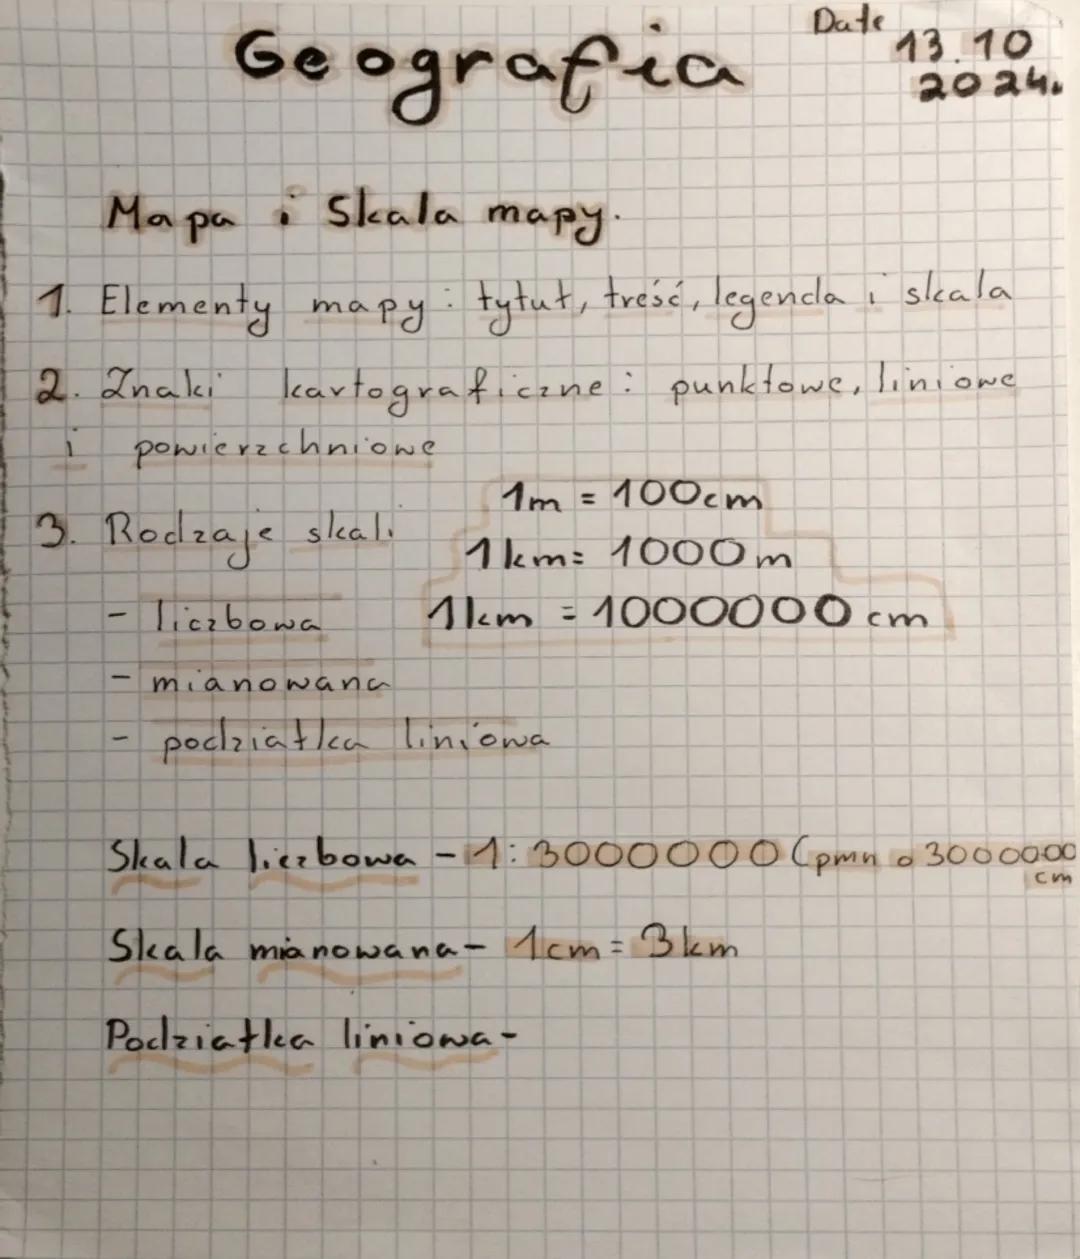 Geografia
Date 13.10
2024.
Mapa i Skala mapy.
1. Elementy mapy: tytuł, treść, legenda i skala
2. Znaki kartograficzne: punktowe, liniowe
i powierzchniowe
3. Rodzaje skali
1m = 100cm
1km = 1000m
- liczbowa
1km = 1000000cm
- mianowana
- podziałka liniowa
Skala liczbowa - 1:3000000 (pmn o 3000000
cm
Skala mianowana - 1cm = 3km
Podziałka liniowa -